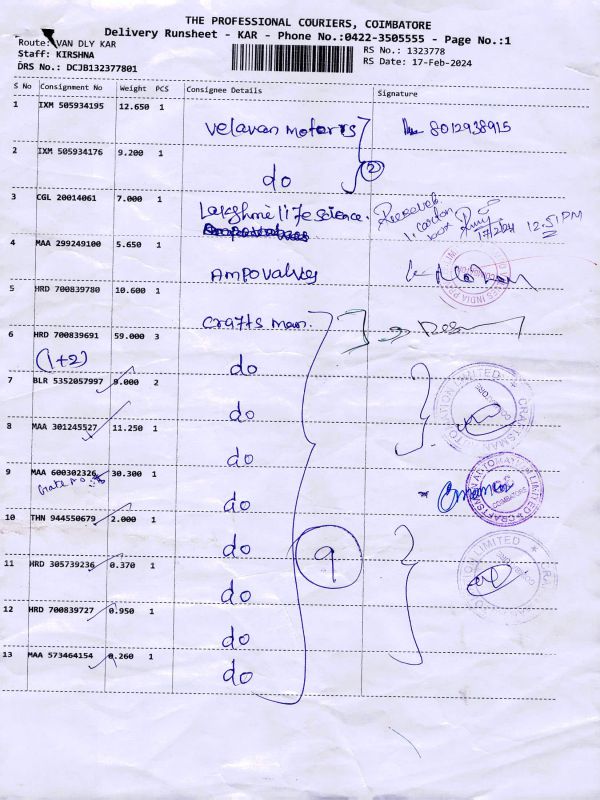 THE PROFESSIONAL COURIERS, COIMBATORE
Delivery Runsheet - KAR - Phone No.:0422-3505555 - Page No.:1
Route: VAN DLY KAR
Staff: KIRSHNA
DRS No.: DCJB132377801
RS No.: 1323778
RS Date: 17-Feb-2024
S No Consignment No Weight PCS Consignee Details Signature
1 IXM 505934195 12.650 1 Velavan motorrs 8012938915
2 IXM 505934176 9.200 1 do 2
3 CGL 20014061 7.000 1 Lakshmi life science. Received 1. carton box 17/2/24 12.51 PM
4 MAA 299249100 5.650 1 AMPOValves
5 HRD 700839780 10.600 1 Crafts man.
6 HRD 700839691 59.000 3 do
(1+2)
7 BLR 5352057997 9.000 2 do
8 MAA 301245527 11.250 1 do
9 MAA 600302326 30.300 1 do
10 THN 944550679 2.000 1 do
11 HRD 305739236 0.370 1 do
12 HRD 700839727 0.950 1 do
13 MAA 573464154 0.260 1 do
9